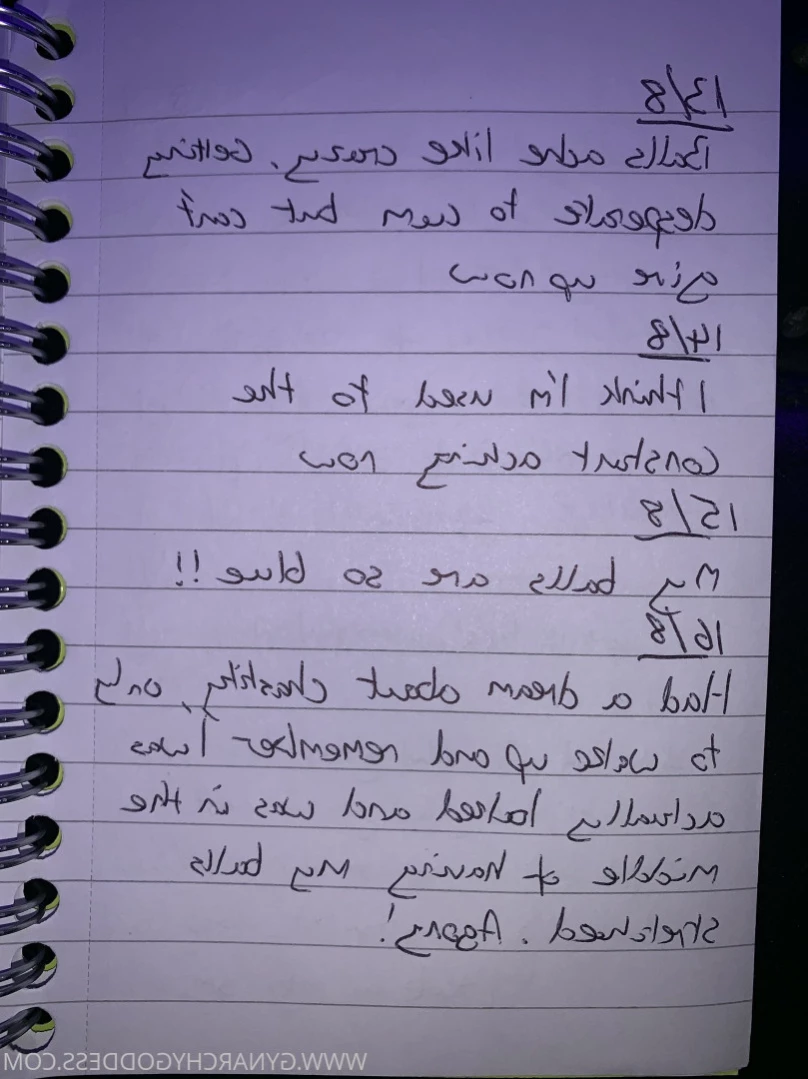 13/8
Balls ache like crazy. Getting
desperate to cum but can't
give up now
14/8
I think I'm used to the
constant aching now
15/8
My balls are so blue!!
16/8
Had a dream about chastity, only
to wake up and remember I was
actually locked and was in the
middle of having my balls
stretched. Agony!
WWW.GYNARCHYGODDESS.COM